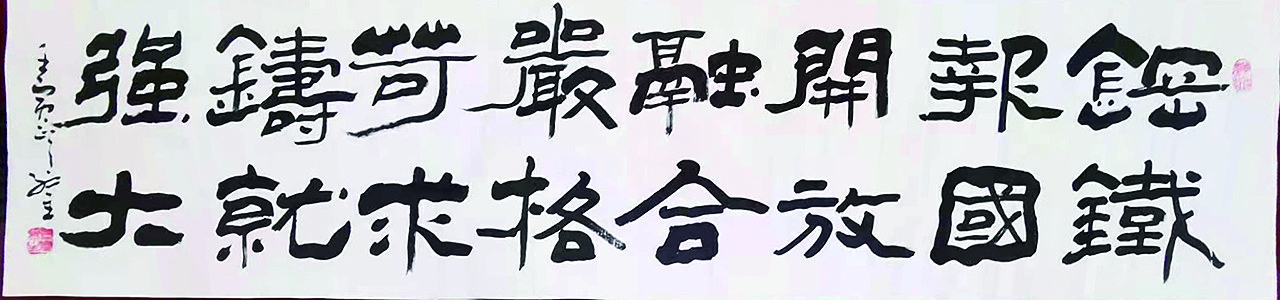 鋼鐵
報國
開放
融合
嚴格
苛求
鑄就
强大